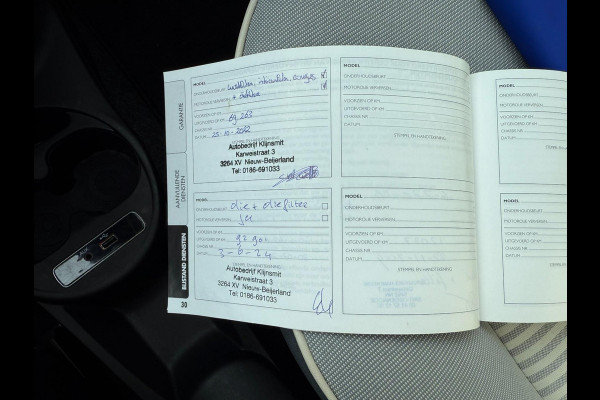 GARANTIE
AANVULLENDE DIENSTEN
BIJSTAND DIENSTEN
30
MODEL
ONDERHOUDSBEURT
MOTOROLIE VERVERSEN
VOORZIEN OP KM
UITGEVOERD OP KM 69 265
CHASSIS NR
DATUM 25-10-2022
STEMPEL EN HANDTEKENING
Autobedrijf Klijnsmit
Karweistraat 3
3264 XV Nieuw-Beijerland
Tel: 0186-691033
MODEL
ONDERHOUDSBEURT olie + oliefilter
MOTOROLIE VERVERSEN ja
VOORZIEN OP KM
UITGEVOERD OP KM
CHASSIS NR
DATUM 3-6-24
STEMPEL EN HANDTEKENING
Autobedrijf Klijnsmit
Karweistraat 3
3264 XV Nieuw-Beijerland
Tel: 0186-691033
MODEL
ONDERHOUDSBEURT
MOTOROLIE VERVERSEN
VOORZIEN OP KM
UITGEVOERD OP KM
CHASSIS NR
DATUM
STEMPEL EN HANDTEKENING
MODEL
ONDERHOUDSBEURT
MOTOROLIE VERVERSEN
VOORZIEN OP KM
UITGEVOERD OP KM
CHASSIS NR
DATUM
STEMPEL EN HANDTEKENING
MODEL
ONDERHOUDSBEURT
MOTOROLIE VERVERSEN
VOORZIEN OP KM
UITGEVOERD OP KM
CHASSIS NR
DATUM
MODEL
ONDERHOUDSBEURT
MOTOROLIE VERVERSEN
VOORZIEN OP KM
UITGEVOERD OP KM
CHASSIS NR
DATUM